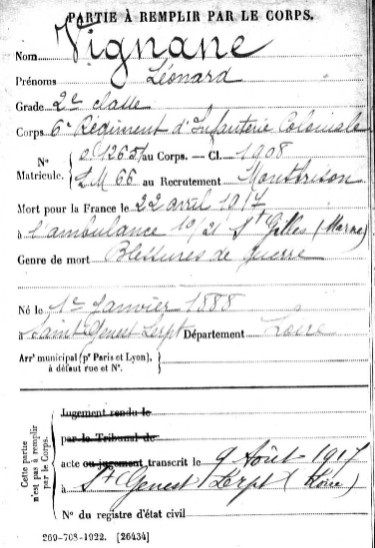 PARTIE À REMPLIR PAR LE CORPS.
Nom Vignane
Prénoms Léonard
Grade 2e classe
Corps 6e Régiment d'Infanterie Coloniale
N° au Corps. — Cl. 1908
Matricule. L M 66 au Recrutement Montbrison
Mort pour la France le 22 avril 1917
à l'ambulance 10/21 St Gilles (Marne)
Genre de mort Blessures de guerre
Né le 1er Janvier 1888
à Saint Genest Lerpt Département Loire
Arrt municipal (pr Paris et Lyon),
à défaut rue et N°.
Cette partie n'est pas à remplir par le Corps.
Jugement rendu le
par le Tribunal de
acte ou jugement transcrit le 9 Août 1917
à St Genest Lerpt (Loire)
N° du registre d'état civil
269-708-1922. [26434]